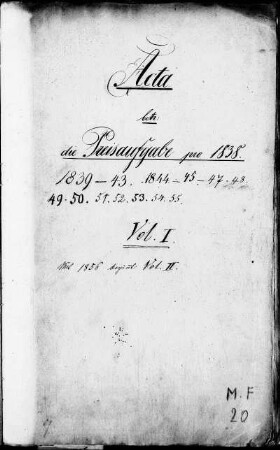 Acta
betr.
die Preisaufgabe pro 1838.
1839–43. 1844–45–47. 48.
49. 50. 51. 52. 53. 54. 55.
Vol. I
1856 Vol. II.
M. F
20